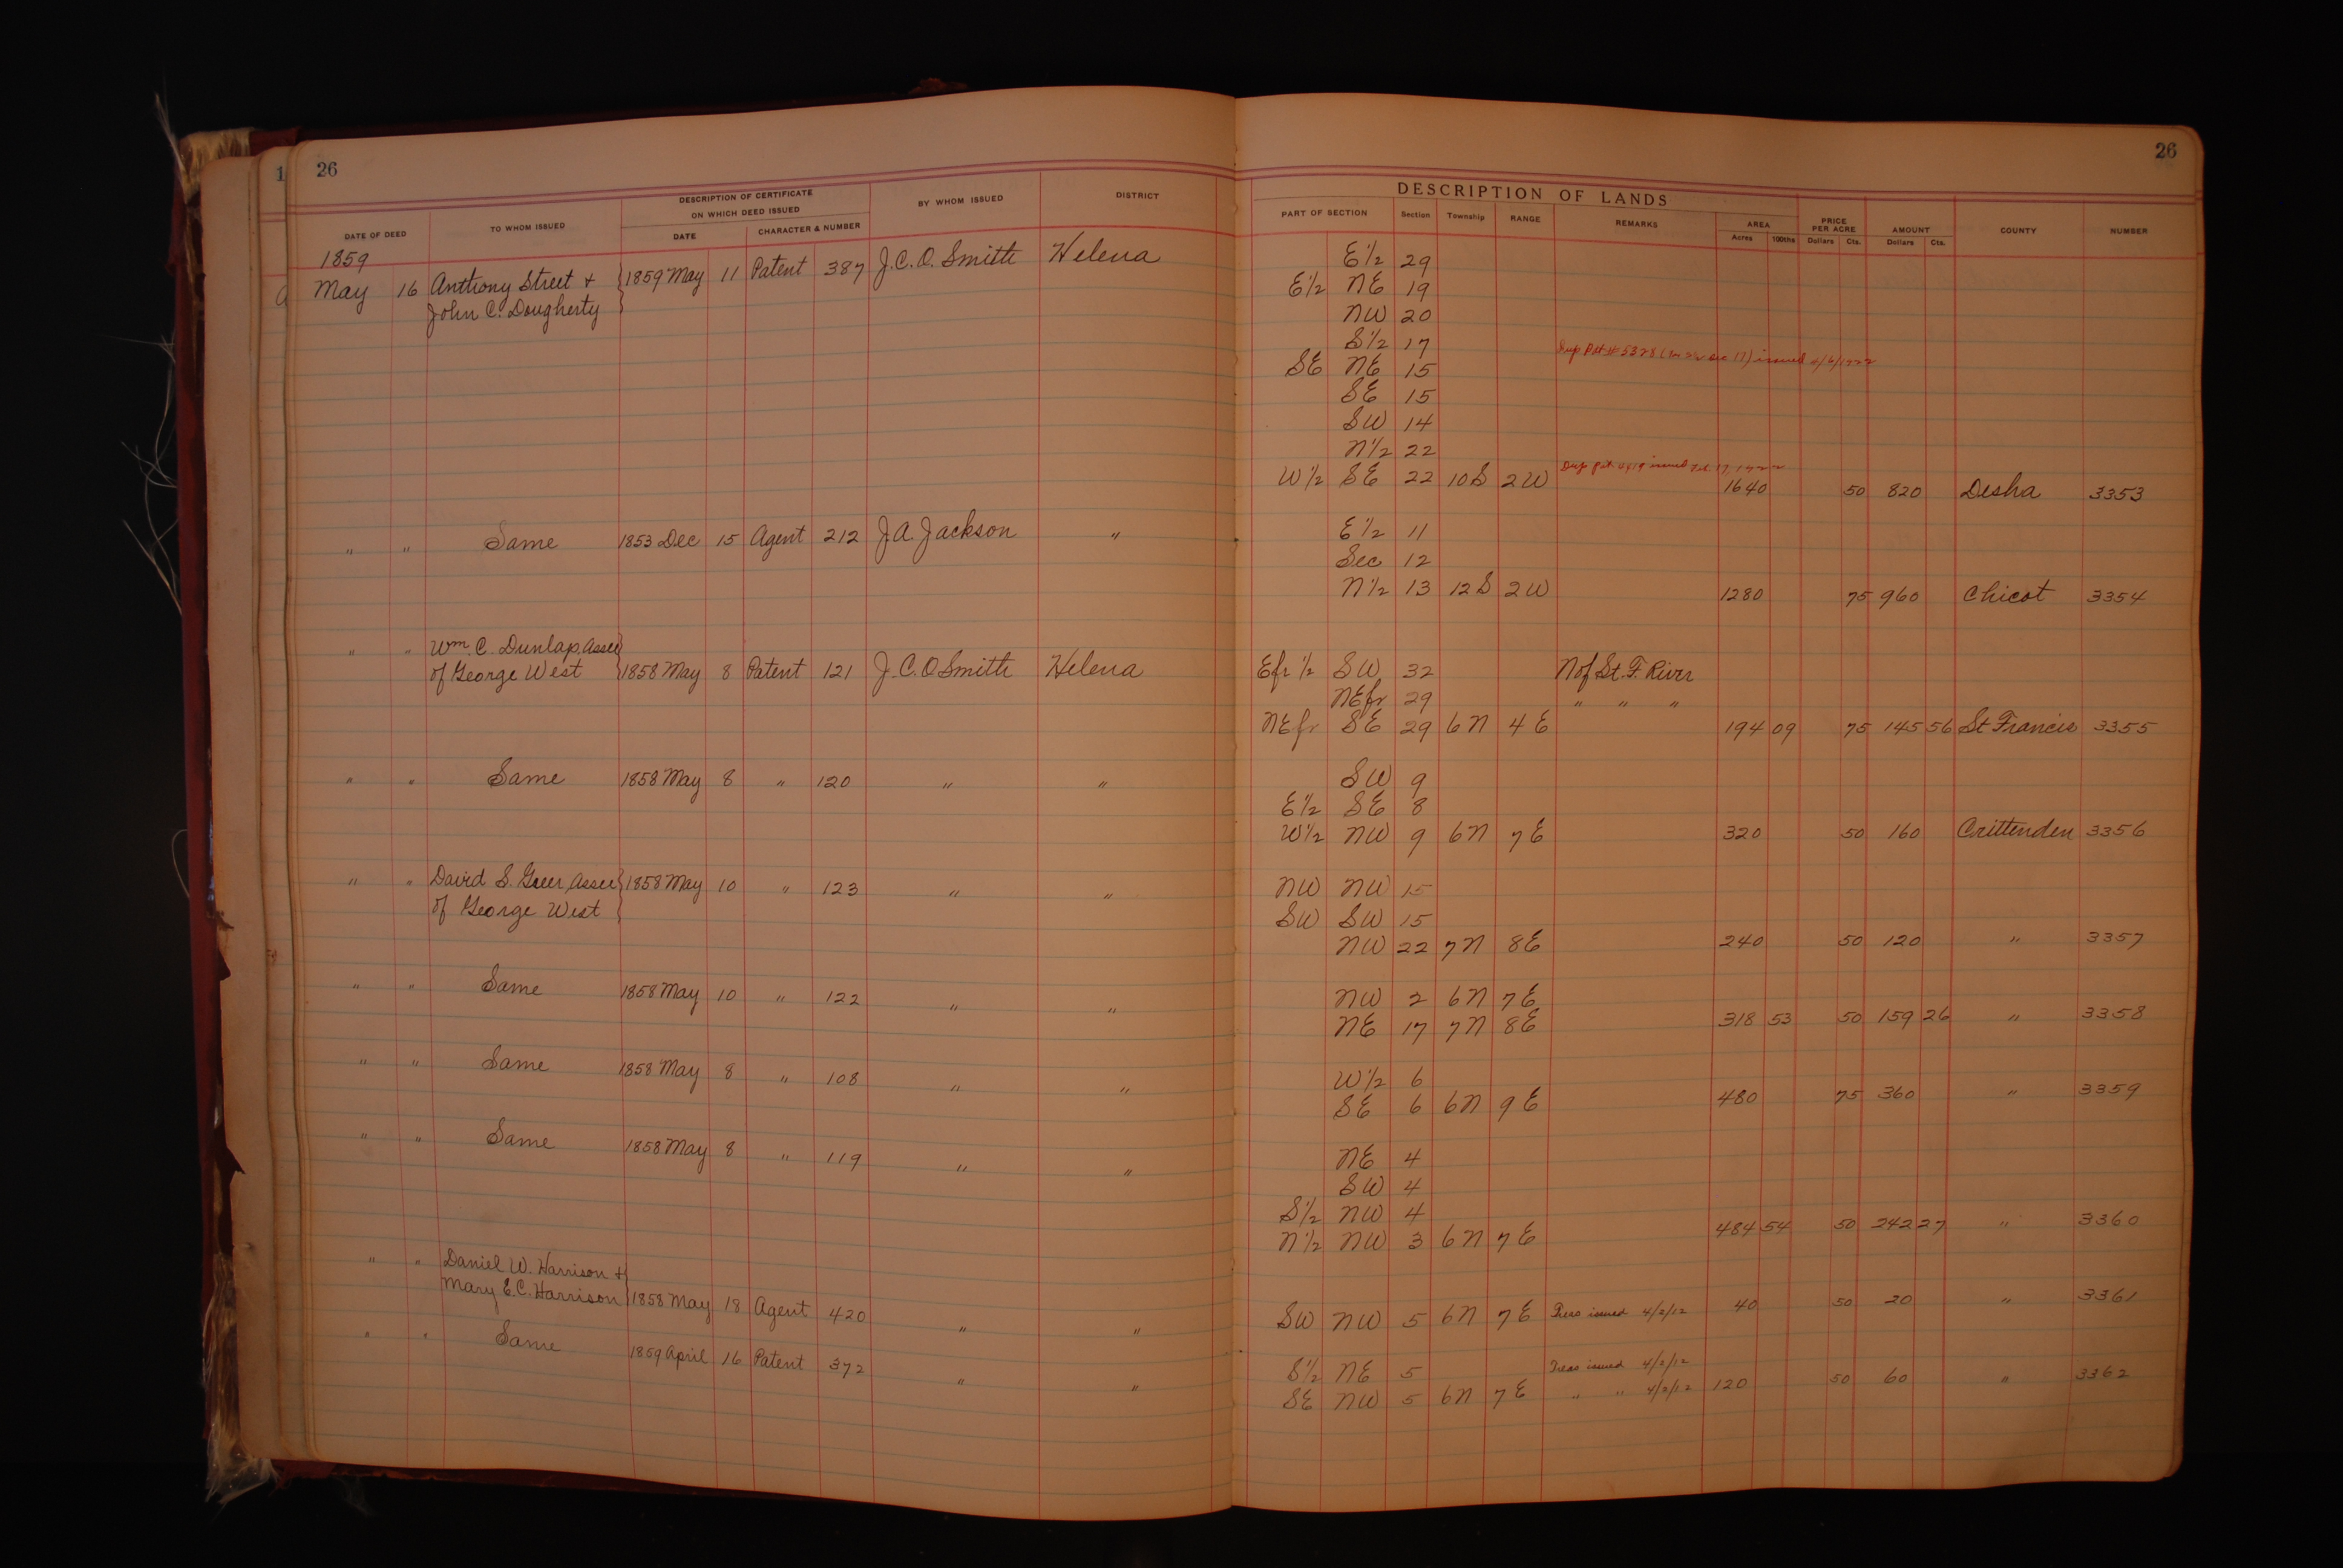 26
26
DESCRIPTION OF CERTIFICATE
ON WHICH DEED ISSUED
DATE OF DEED TO WHOM ISSUED DATE CHARACTER & NUMBER BY WHOM ISSUED DISTRICT
DESCRIPTION OF LANDS
PART OF SECTION Section Township RANGE REMARKS AREA Acres 100ths PRICE PER ACRE Dollars Cts. AMOUNT Dollars Cts. COUNTY NUMBER
1859
May 16 Anthony Street + 1859 May 11 Patent 387 J.C.O. Smith Helena E½ 29
John C. Dougherty E½ NE 19
NW 20
S½ 17
issued
SE NE 15
SE 15
SW 14
N½ 22
issued
W½ SE 22 10S 2W 1640 50 820 Desha 3353
" " Same 1853 Dec 15 Agent 212 J.A. Jackson " E½ 11
Sec 12
N½ 13 12S 2W 1280 75 960 Chicot 3354
" " Wm. C. Dunlap, Assee
of George West 1858 May 8 Patent 121 J.C.O Smith Helena Efr ½ SW 32 N of St. F. River
NEfr 29 " " "
NEfr SE 29 6N 4E 194 09 75 145 56 St Francis 3355
" " Same 1858 May 8 " 120 " " SW 9
E½ SE 8
W½ NW 9 6N 7E 320 50 160 Crittenden 3356
" " David S. Greer Assee 1858 May 10 " 123 " " NW NW 15
of George West SW SW 15
NW 22 7N 8E 240 50 120 " 3357
" " Same 1858 May 10 " 122 " " NW 2 6N 7E
NE 17 7N 8E 318 53 50 159 26 " 3358
" " Same 1858 May 8 " 108 " " W½ 6
SE 6 6N 9E 480 75 360 " 3359
" " Same 1858 May 8 " 119 " " NE 4
SW 4
S½ NW 4
N½ NW 3 6N 7E 484 54 50 242 27 " 3360
" " Daniel W. Harrison +
Mary E.C. Harrison 1858 May 18 Agent 420 " " SW NW 5 6N 7E issued 4/2/12 40 50 20 " 3361
" " Same 1859 April 16 Patent 372 " " S½ NE 5 issued 4/2/12
SE NW 5 6N 7E " " 4/2/12 120 50 60 " 3362